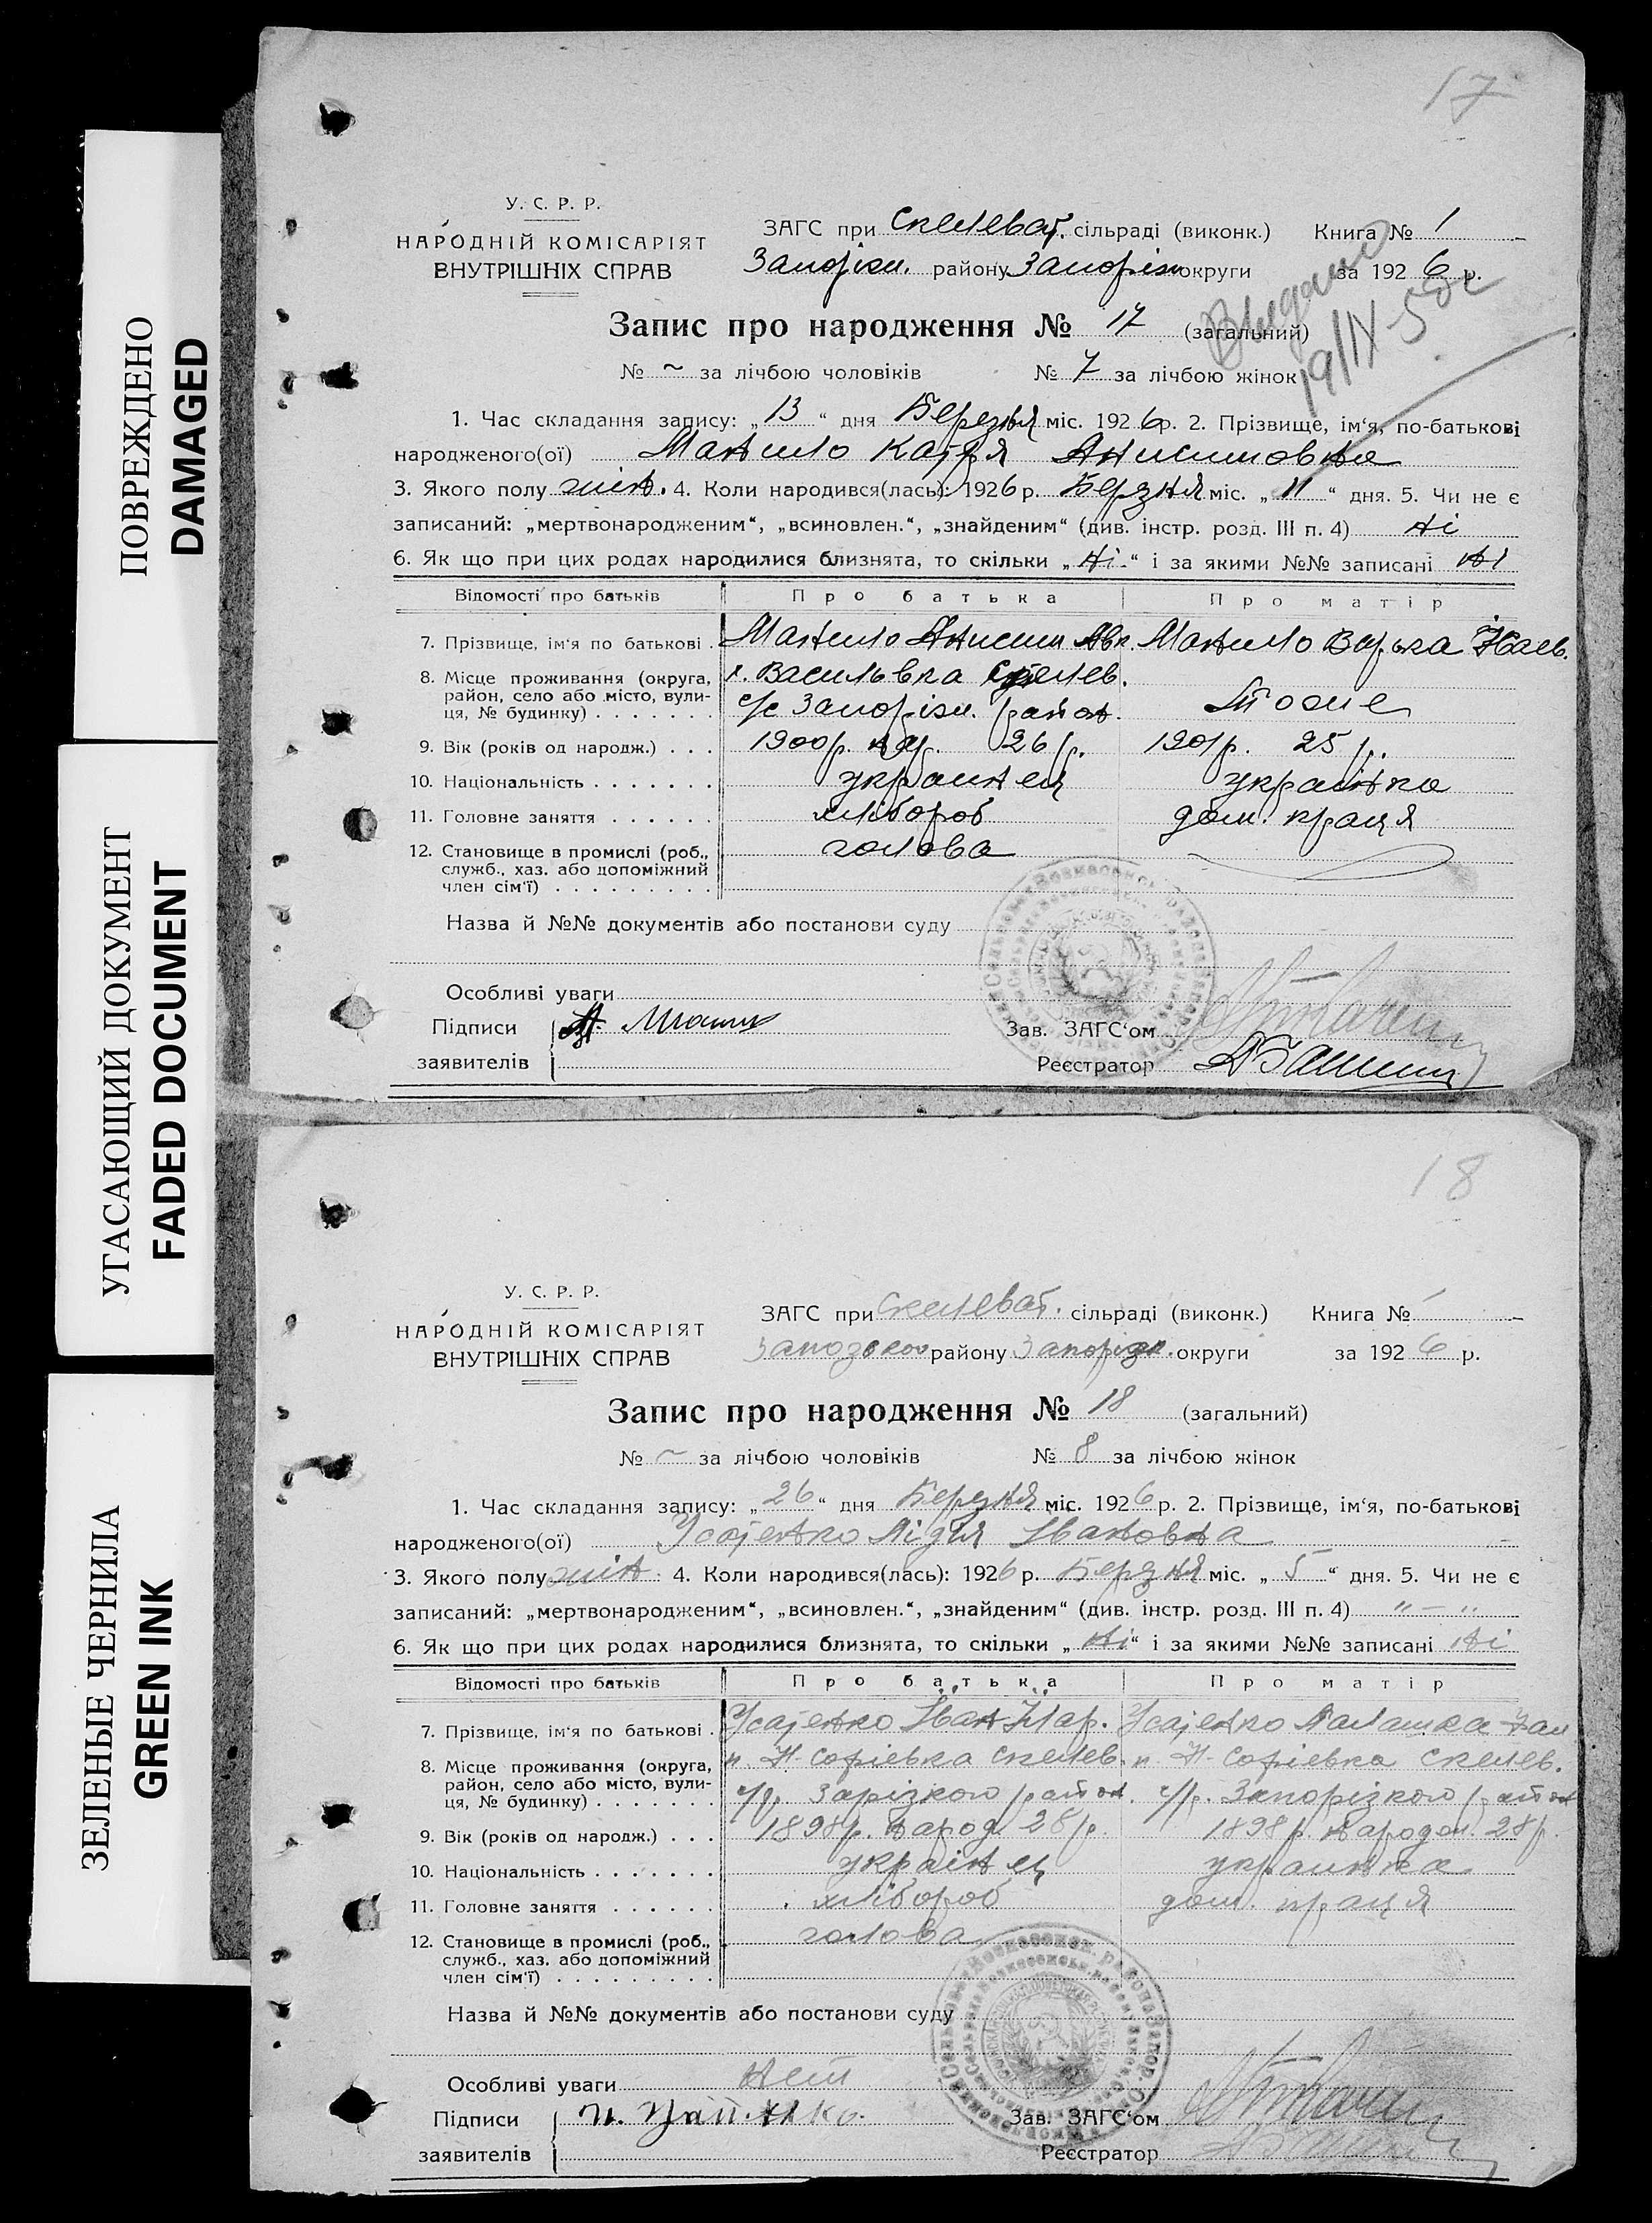 ПОВРЕЖДЕНО
DAMAGED
УГАСАЮЩИЙ ДОКУМЕНТ
FADED DOCUMENT
ЗЕЛЕНЫЕ ЧЕРНИЛА
GREEN INK
17
У. С. Р. Р.
НАРОДНІЙ КОМІСАРІЯТ
ВНУТРІШНІХ СПРАВ
ЗАГС при Скелеват. сільраді (виконк.) Книга № 1
Запоріж. району Запоріж округи за 1926 р.
Видано
19/IX 5
Запис про народження № 17 (загальний)
№ ~ за лічбою чоловіків № 7 за лічбою жінок
1. Час складання запису: „13“ дня Березня міс. 1926р. 2. Прізвище, ім‘я, по-батькові
народженого(ої) Манило Катря Анисимовна
3. Якого полу жін. 4. Коли народився(лась): 1926р. Березня міс. „11“ дня. 5. Чи не є
записаний: „мертвонародженим“, „всиновлен.“, „знайденим“ (див. інстр. розд. III п. 4) Ні
6. Як що при цих родах народилися близнята, то скільки „Ні“ і за якими №№ записані Ні
Відомості про батьків Про батька Про матір
7. Прізвище, ім‘я по батькові . Манило Анисим Манило Варька
8. Місце проживання (округа, район, село або місто, вулиця, № будинку) . . . . . . . х. Васильвка Скелев. с/с Запоріж. район. Тоже
9. Вік (років од народж.) . . . 1900р. 26 р. 1901р. 25 р.
10. Національність . . . . . . . украинец українка
11. Головне заняття . . . . . . хлібороб дом. праця
12. Становище в промислі (роб., служб., хаз. або допоміжний член сім‘ї) . . . . . . . . . голова
Назва й №№ документів або постанови суду
Особливі уваги
Підписи
заявителів
Зав. ЗАГС‘ом
Реєстратор
18
У. С. Р. Р.
НАРОДНІЙ КОМІСАРІЯТ
ВНУТРІШНІХ СПРАВ
ЗАГС при Скелеват. сільраді (виконк.) Книга №
району Запоріж. округи за 1926 р.
Запис про народження № 18 (загальний)
№ ~ за лічбою чоловіків № 8 за лічбою жінок
1. Час складання запису: „26“ дня Березня міс. 1926 р. 2. Прізвище, ім‘я, по-батькові
народженого(ої) Лідия Ивановна
3. Якого полу жін 4. Коли народився(лась): 1926 р. Березня міс. „5“ дня. 5. Чи не є
записаний: „мертвонародженим“, „всиновлен.“, „знайденим“ (див. інстр. розд. III п. 4) „ — „
6. Як що при цих родах народилися близнята, то скільки „Ні“ і за якими №№ записані Ні
Відомості про батьків Про батька Про матір
7. Прізвище, ім‘я по батькові . Іван Палашка
8. Місце проживання (округа, район, село або місто, вулиця, № будинку) . . . . . . . Н-Софіевка Скелев. с/р. Зарізкого район. Н-Софіевка Скелев. с/р. Запорізкого район
9. Вік (років од народж.) . . . 1898р. народ. 28 р. 1898 р. народж. 28 р.
10. Національність . . . . . . . українец украинка
11. Головне заняття . . . . . . хлібороб дом. праця
12. Становище в промислі (роб., служб., хаз. або допоміжний член сім‘ї) . . . . . . . . . голова
Назва й №№ документів або постанови суду
Особливі уваги нет
Підписи
заявителів
Зав. ЗАГС‘ом
Реєстратор